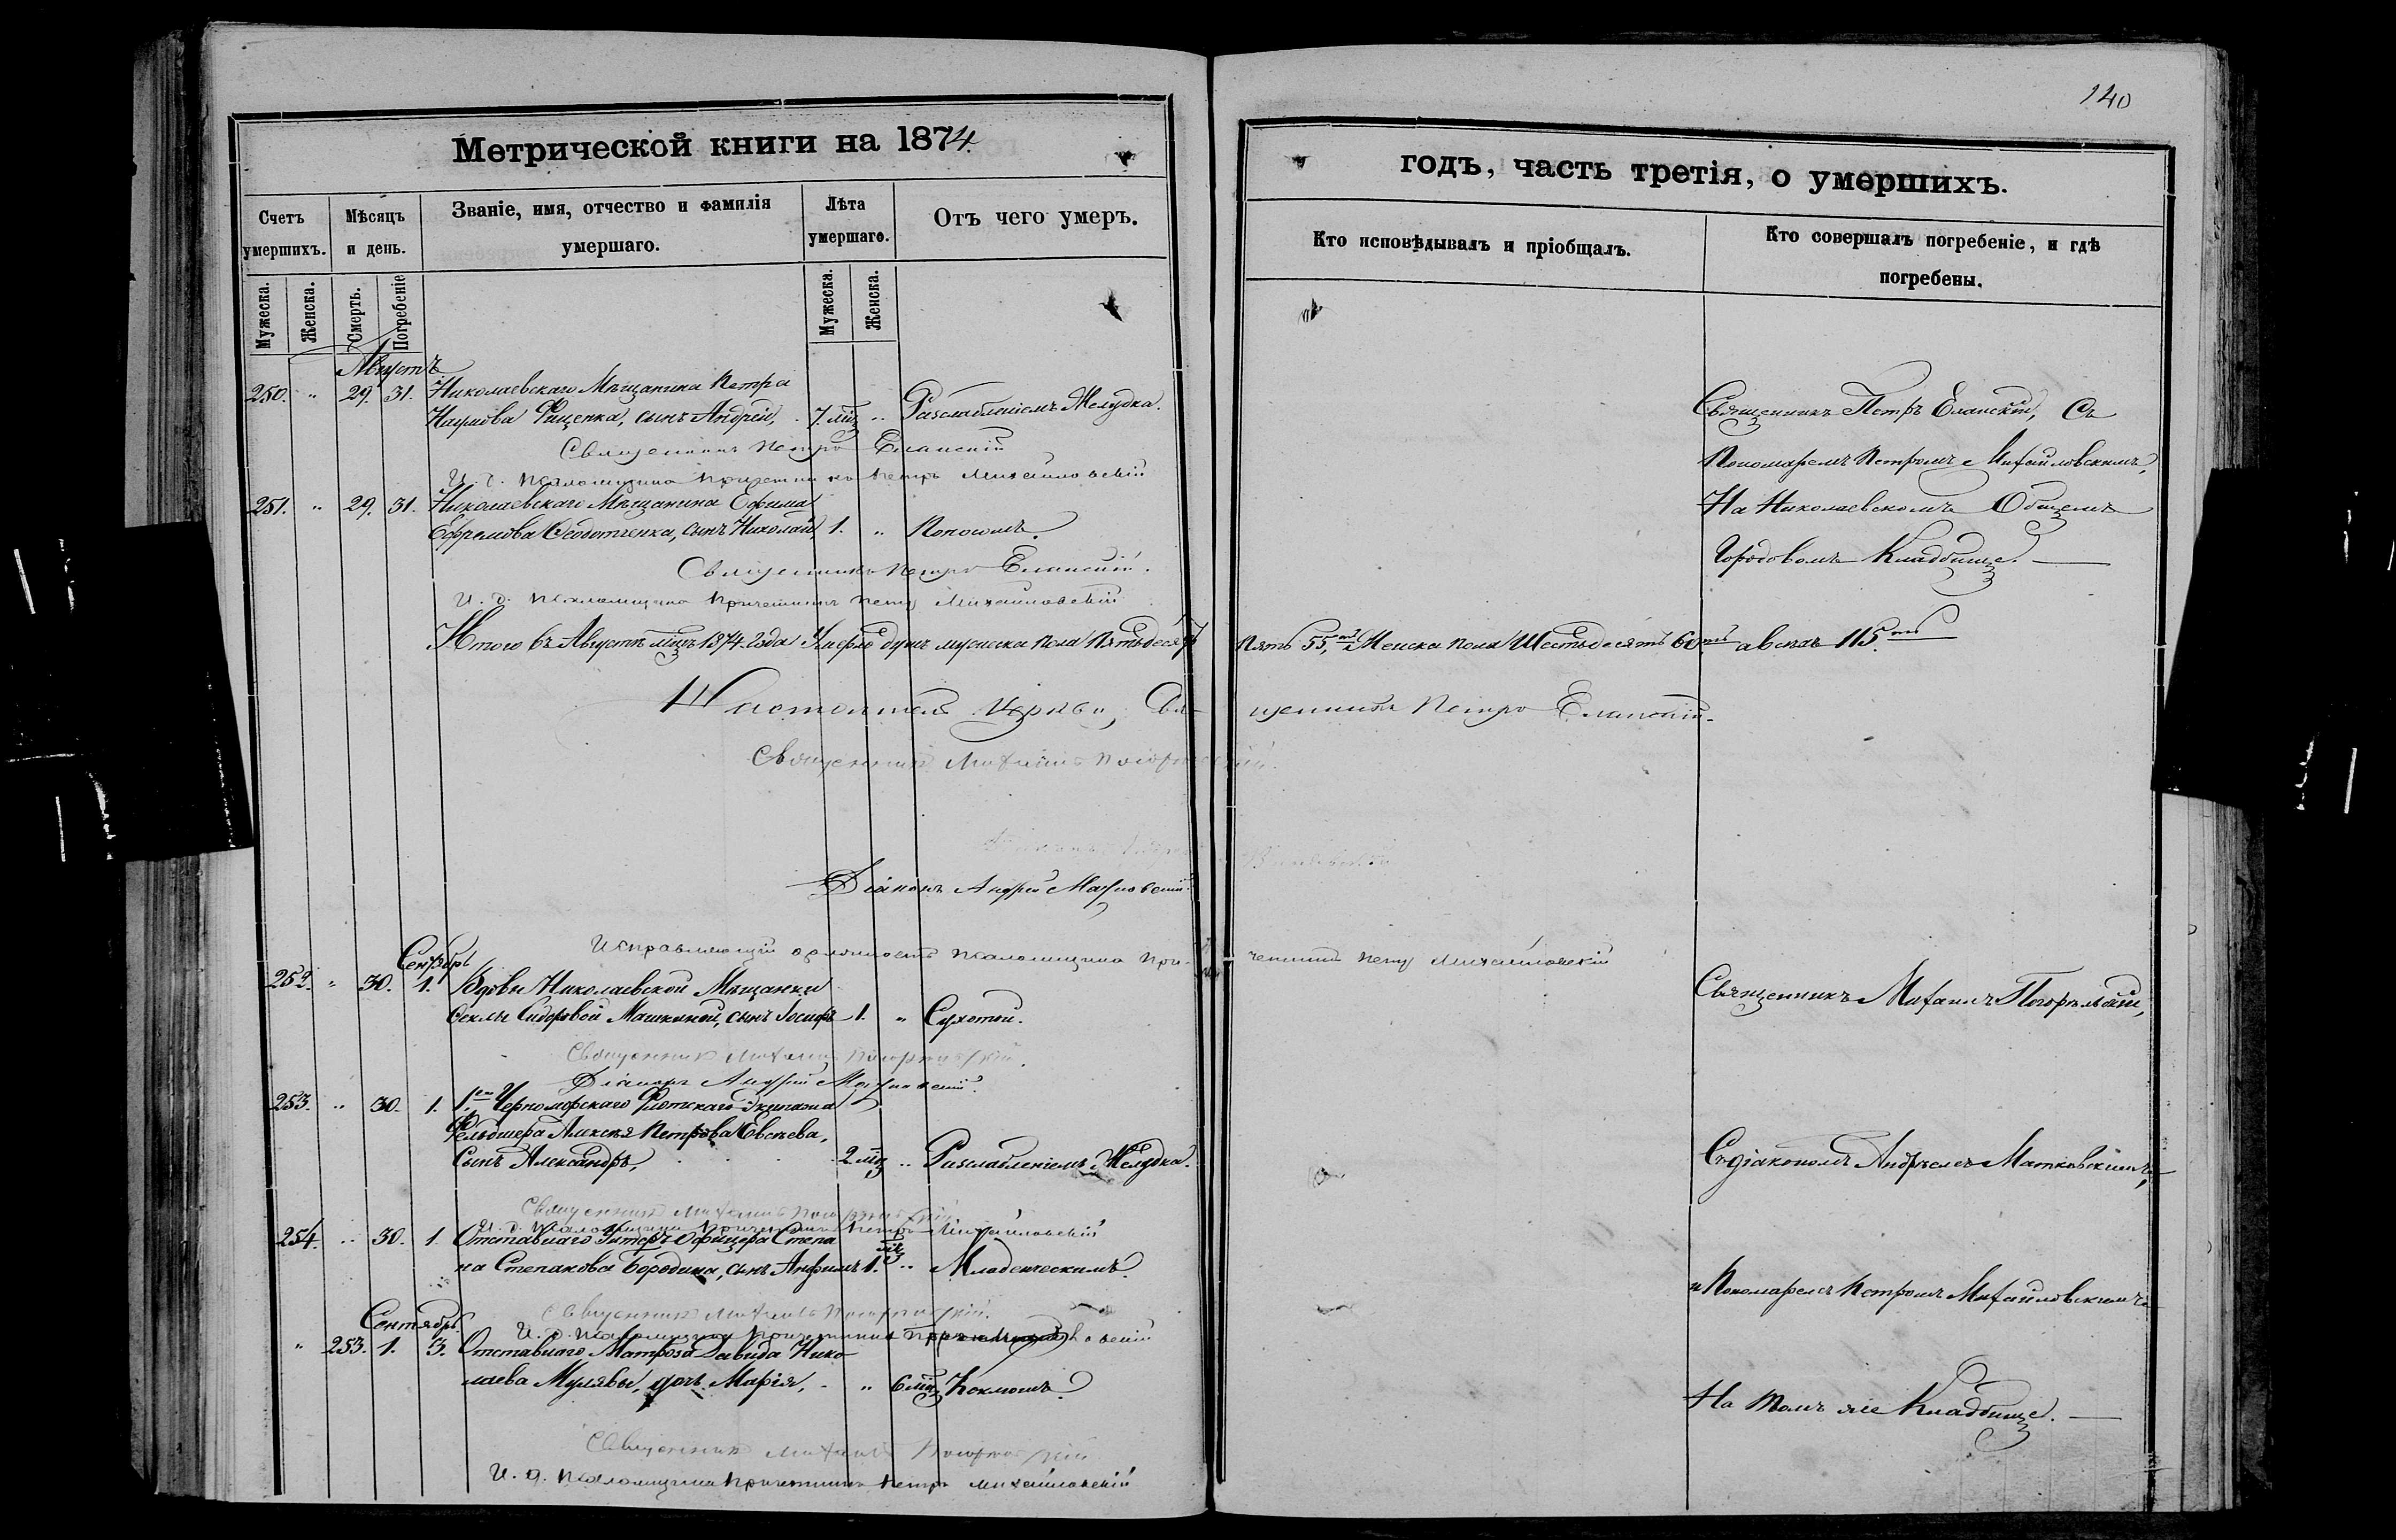 140
Метрической книги на 1874
годъ, часть третія, о умершихъ.
Счетъ умершихъ.
Мѣсяцъ и день.
Званіе, имя, отчество и фамилія умершаго.
Лѣта умершаго.
Отъ чего умеръ.
Кто исповѣдывалъ и пріобщалъ.
Кто совершалъ погребеніе, и гдѣ погребены.
Мужеска.
Женска.
Смерть.
Погребеніе
Мужеска.
Женска.
Августъ
250. " 29. 31. Николаевскаго Мѣщанина Петра
Наумова Рищенка, сынъ Андрей, 7. мц " Разслабленіемъ Желудка.
Священникъ Петръ Еланскій
И. д. Псаломщика Причетникъ Петръ Михайловскій
251. " 29. 31. Николаевскаго Мѣщанина Ефима
Ефремова Ѳедотченка, сынъ Николай 1. " Поносомъ.
Священникъ Петръ Еланскій.
И. д. Псаломщика Причетникъ Петръ Михайловскій
Священникъ Петръ Еланскій, Съ
Пономаремъ Петромъ Михайловскимъ,
На Николаевскомъ Общемъ
Городовомъ Кладбищѣ.
Итого въ Августѣ мцѣ 1874 года Умерло душъ мужеска пола Пятьдесятъ
Пять 55, Женска пола Шестьдесятъ 60 а всѣхъ 115.
Настоятель Церкви, Свя-
щенникъ Петръ Еланскій.
Священникъ Михаилъ Погорѣльскій.
Діаконъ Андрей Матковскій
Исправляющій должность Псаломщика При-
четникъ Петръ Михайловскій
Сентябрь
252. " 30. 1. Вдовы Николаевской Мѣщанки
Ѳеклы Сидоровой Машкиной, сынъ Іосифъ 1. " Сухотой.
Священникъ Михаилъ Погорѣльскій.
Діаконъ Андрей Матковскій.
253. " 30. 1. 1го Черноморскаго Флотскаго Экипажа
Фельдшера Алексѣя Петрова Евсѣева,
Сынъ Александръ, 2 мц " Разслабленіемъ Желудка.
Священникъ Михаилъ Погорѣльскій
И. д. Псаломщика Причетникъ Петръ Михайловскій
254. " 30. 1. Отставнаго Унтеръ Офицера Степа
на Степанова Бородина, сынъ Анфимъ 1. мц " Младенческимъ.
Священникъ Михаилъ Погорѣльскій.
И. д. Псаломщика Причетникъ
Сентябрь.
" 253. 1. 3. Отставнаго Матроса Давида Нико
лаева Мулявы, дочь Марія, " 6 мц Коклюшъ.
Священникъ Михаилъ Погорѣльскій
И. д. Псаломщика Причетникъ Петръ Михайловскій
Священникъ Михаилъ Погорѣльскій,
Съ діакономъ Андреемъ Матковскимъ,
и Пономаремъ Петромъ Михайловскимъ
На томъ же Кладбищѣ.